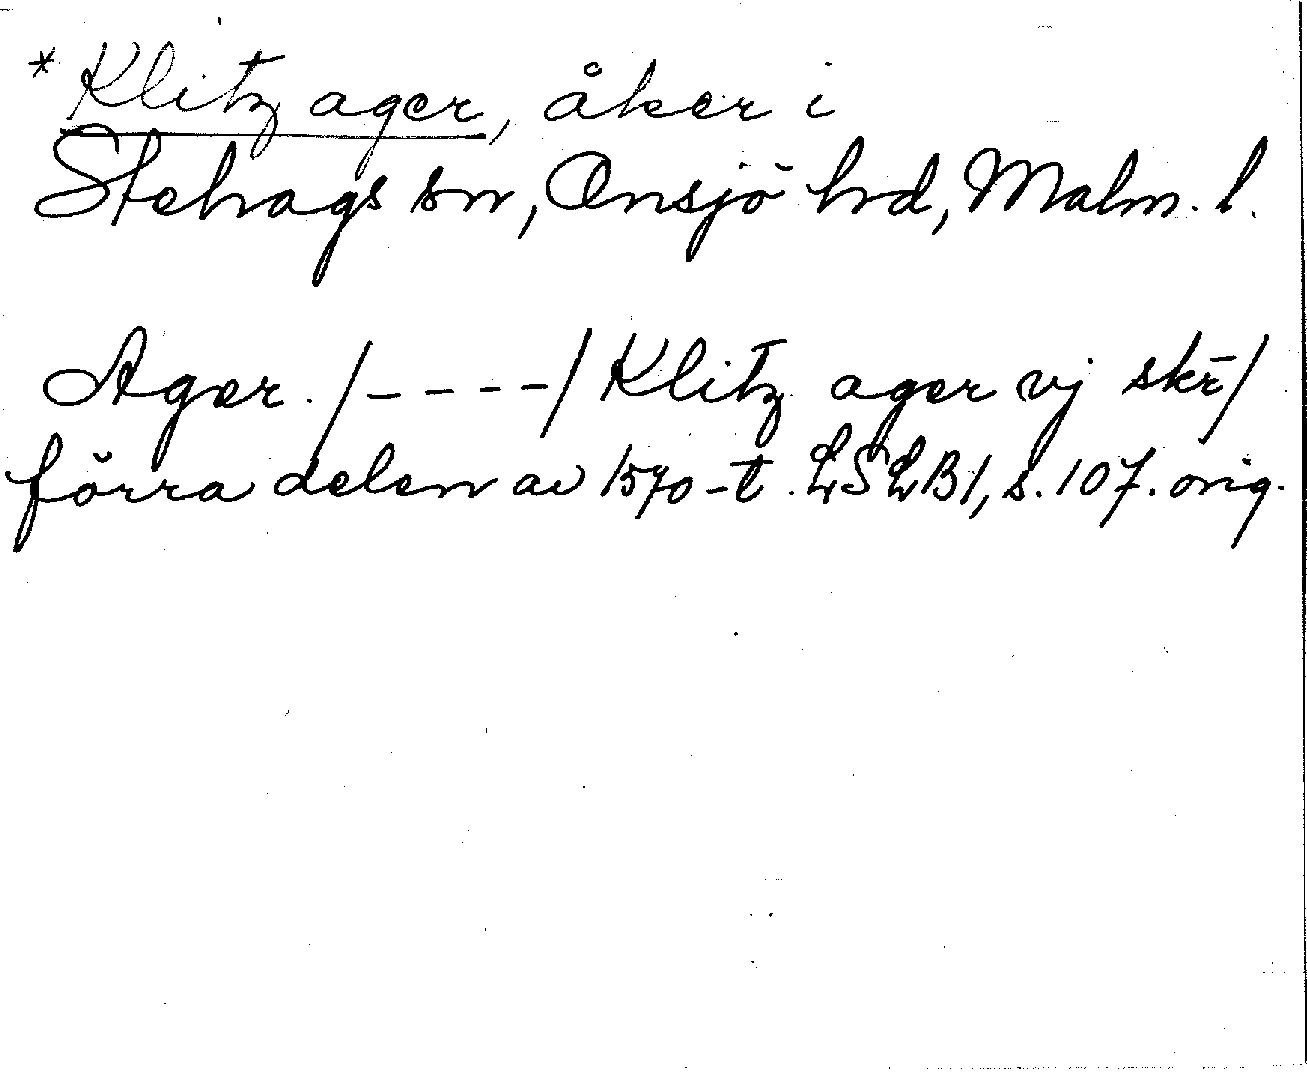 * Klitz ager, åker i
Stehags sn, Onsjö hd, Malm. l.
Ager. /----/ Klitz ager vj skr̄/
förra delen av 1570-t. LSLB1, s. 107. orig.